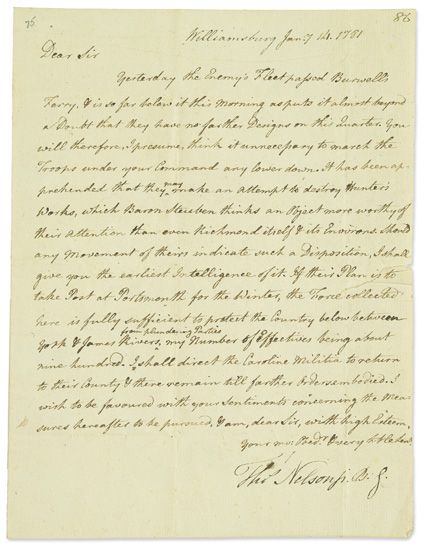 76 86
Williamsburg Jany 14. 1781
Dear Sir
Yesterday the Enemy's Fleet passed Burwell's
Ferry, & is so far below it this Morning as puts it almost beyond
a Doubt that they have no farther Designs on this Quarter. You
will therefore, I presume, think it unnecessary to march the
Troops under your Command any lower down. It has been ap-
prehended that they may make an attempt to destroy Hunter's
Works, which Baron Steuben thinks an Object more worthy of
their Attention than even Richmond itself & its Environs. Should
any Movement of theirs indicate such a Disposition, I shall
give you the earliest Intelligence of it. If their Plan is to
take Post at Portsmouth for the Winter, the Force collected
here is fully sufficient to protect the Country below between
York & James Rivers, from plundering Parties my Number of Effectives being about
nine hundred. I shall direct the Caroline Militia to return
to their County & there remain till farther Orders embodied. I
wish to be favoured with your Sentiments concerning the Mea-
sures hereafter to be pursued, & am, dear Sir, with high Esteem,
Your mo: Obedt. & very hble
Thos Nelson jr. B. G.